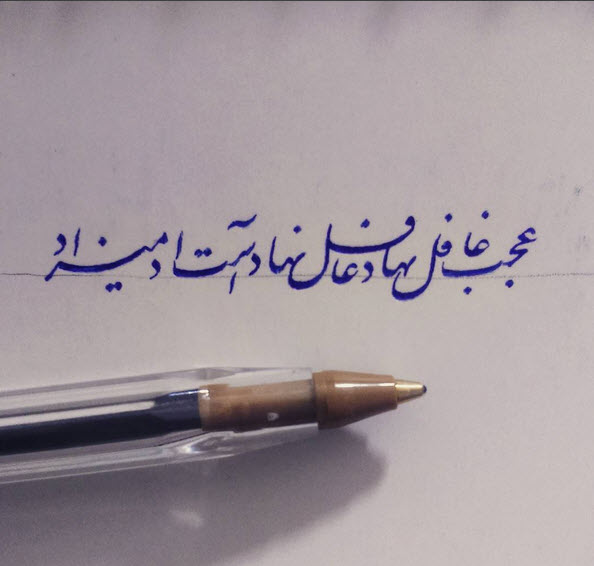 عجب غافل نهاد غافل نهاد است آدمیزاد